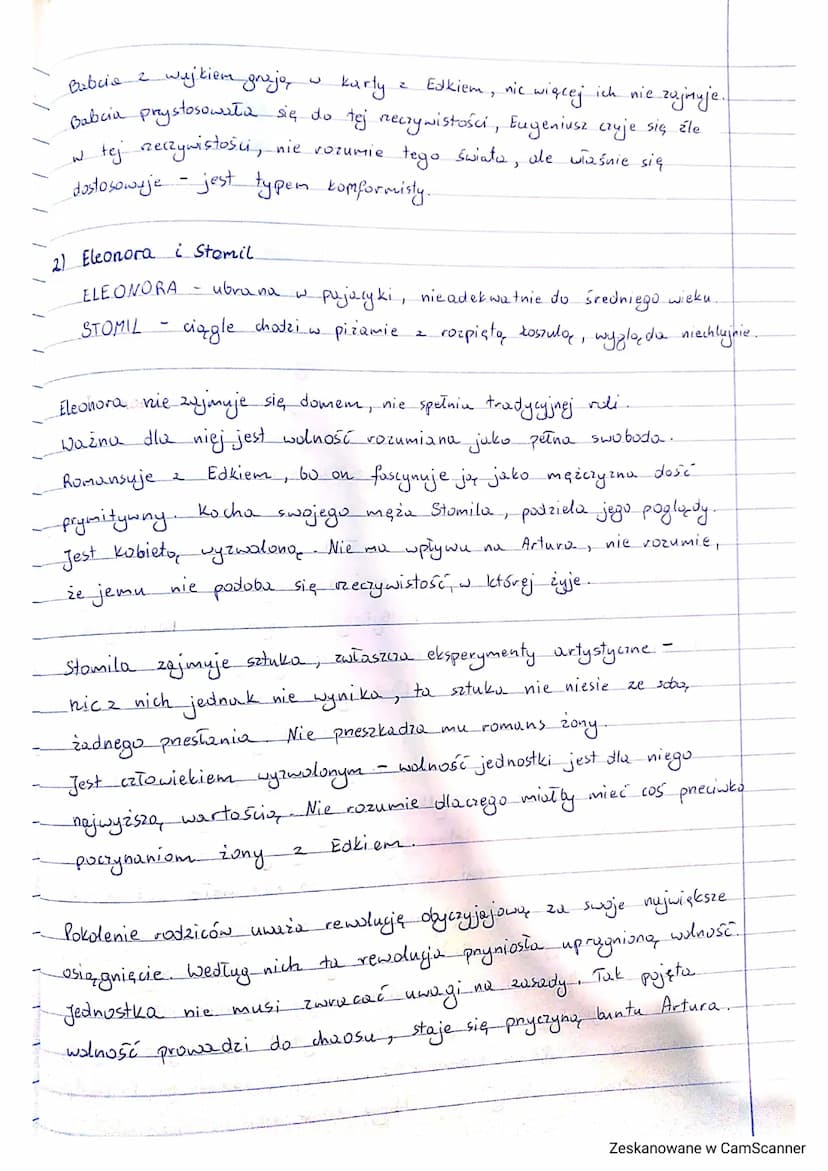 Babcia z wujkiem grają w karty z Edkiem, nic więcej ich nie zajmuje.
Babcia przystosowała się do tej rzeczywistości, Eugeniusz czuje się źle
w tej rzeczywistości, nie rozumie tego świata, ale właśnie się
dostosowuje - jest typem komformisty.
2) Eleonora i Stomil
ELEONORA - ubrana w pajacyki, nieadekwatnie do średniego wieku.
STOMIL - ciągle chodzi w piżamie z rozpiętą koszulą, wygląda niechlujnie.
Eleonora nie zajmuje się domem, nie spełnia tradycyjnej roli.
Ważna dla niej jest wolność rozumiana jako pełna swoboda.
Romansuje z Edkiem, bo on fascynuje ją jako mężczyzna dość
prymitywny. Kocha swojego męża Stomila, podziela jego poglądy.
Jest kobietą wyzwoloną. Nie ma wpływu na Artura, nie rozumie,
że jemu nie podoba się rzeczywistość, w której żyje.
Stomila zajmuje sztuka, zwłaszcza eksperymenty artystyczne -
nic z nich jednak nie wynika, ta sztuka nie niesie ze sobą
żadnego przesłania. Nie przeszkadza mu romans żony.
Jest człowiekiem wyzwolonym - wolność jednostki jest dla niego
najwyższą wartością. Nie rozumie dlaczego miałby mieć coś przeciwko
poczynaniom żony z Edkiem.
Pokolenie rodziców uważa rewolucję obyczajową za swoje największe
osiągnięcie. Według nich ta rewolucja przyniosła upragnioną wolność.
Jednostka nie musi zwracać uwagi na zasady. Tak pojęta
wolność prowadzi do chaosu, staje się przyczyną buntu Artura.
Zeskanowane w CamScanner